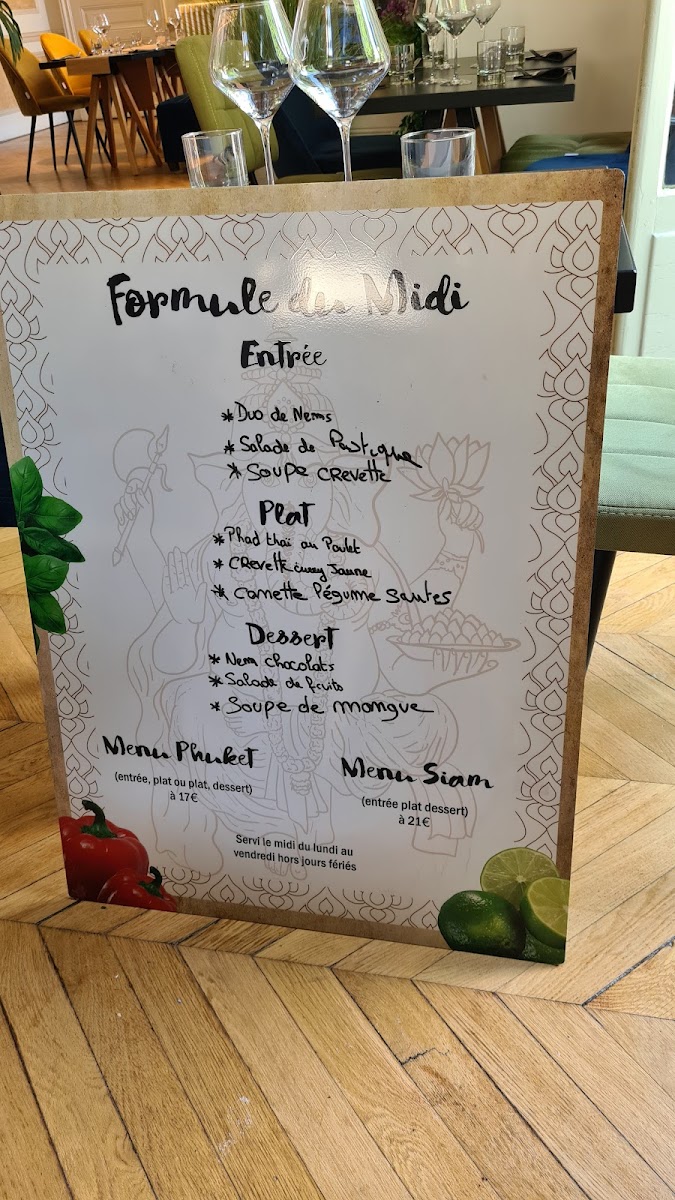 Formule du Midi
Entrée
*Duo de Nems
*Salade de Pastique
*Soupe CREVETTE
Plat
*Phad thaï au Poulet
*CREVETTE curry Jaune
*Comette légume sautes
Dessert
*Nem chocolats
*Salade de fruits
*Soupe de mongue
Menu Phuket
(entrée, plat ou plat, dessert)
à 17€
Menu Siam
(entrée plat dessert)
à 21€
Servi le midi du lundi au
vendredi hors jours fériés